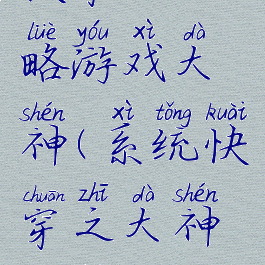 lüè yóu xì dà
略游戏大
shén xì tǒng kuài
神(系统快
chuān zhī dà shén
穿之大神